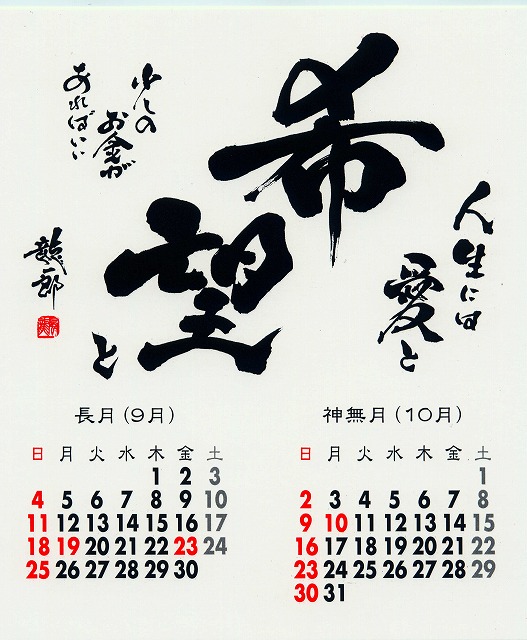 人生には
愛と
希
望
と
少しの
お金が
あればいい
龍一郎
長月(9月)
日 月 火 水 木 金 土
1 2 3
4 5 6 7 8 9 10
11 12 13 14 15 16 17
18 19 20 21 22 23 24
25 26 27 28 29 30
神無月(10月)
日 月 火 水 木 金 土
1
2 3 4 5 6 7 8
9 10 11 12 13 14 15
16 17 18 19 20 21 22
23 24 25 26 27 28 29
30 31